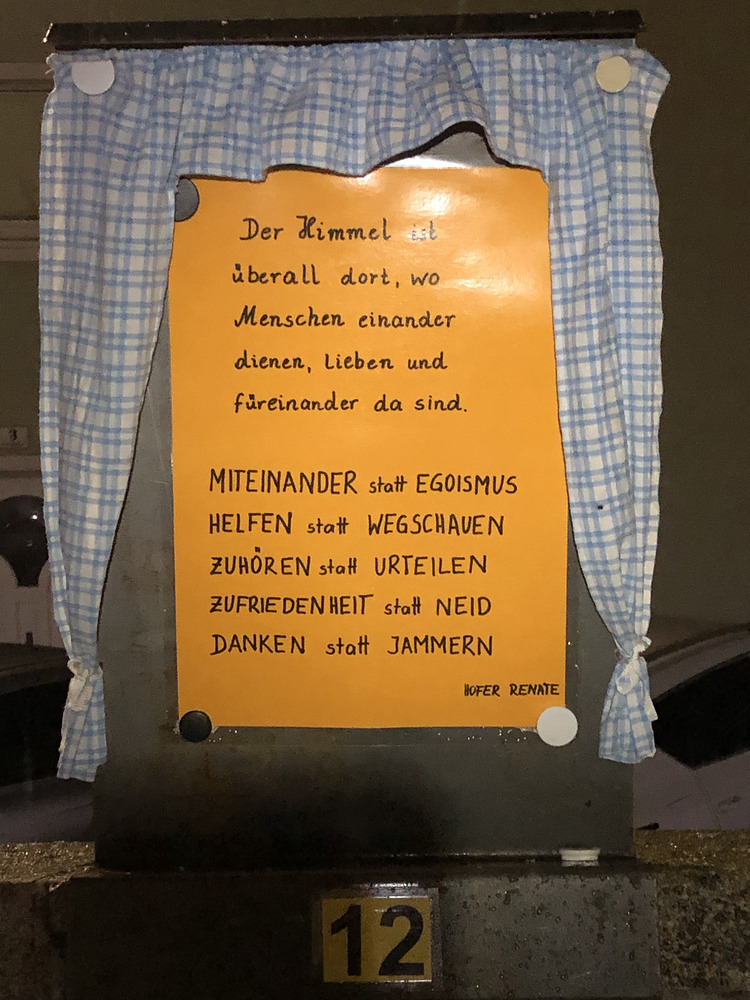 Der Himmel ist
überall dort, wo
Menschen einander
dienen, lieben und
füreinander da sind.
MITEINANDER statt EGOISMUS
HELFEN statt WEGSCHAUEN
ZUHÖREN statt URTEILEN
ZUFRIEDENHEIT statt NEID
DANKEN statt JAMMERN
HOFER RENATE
12